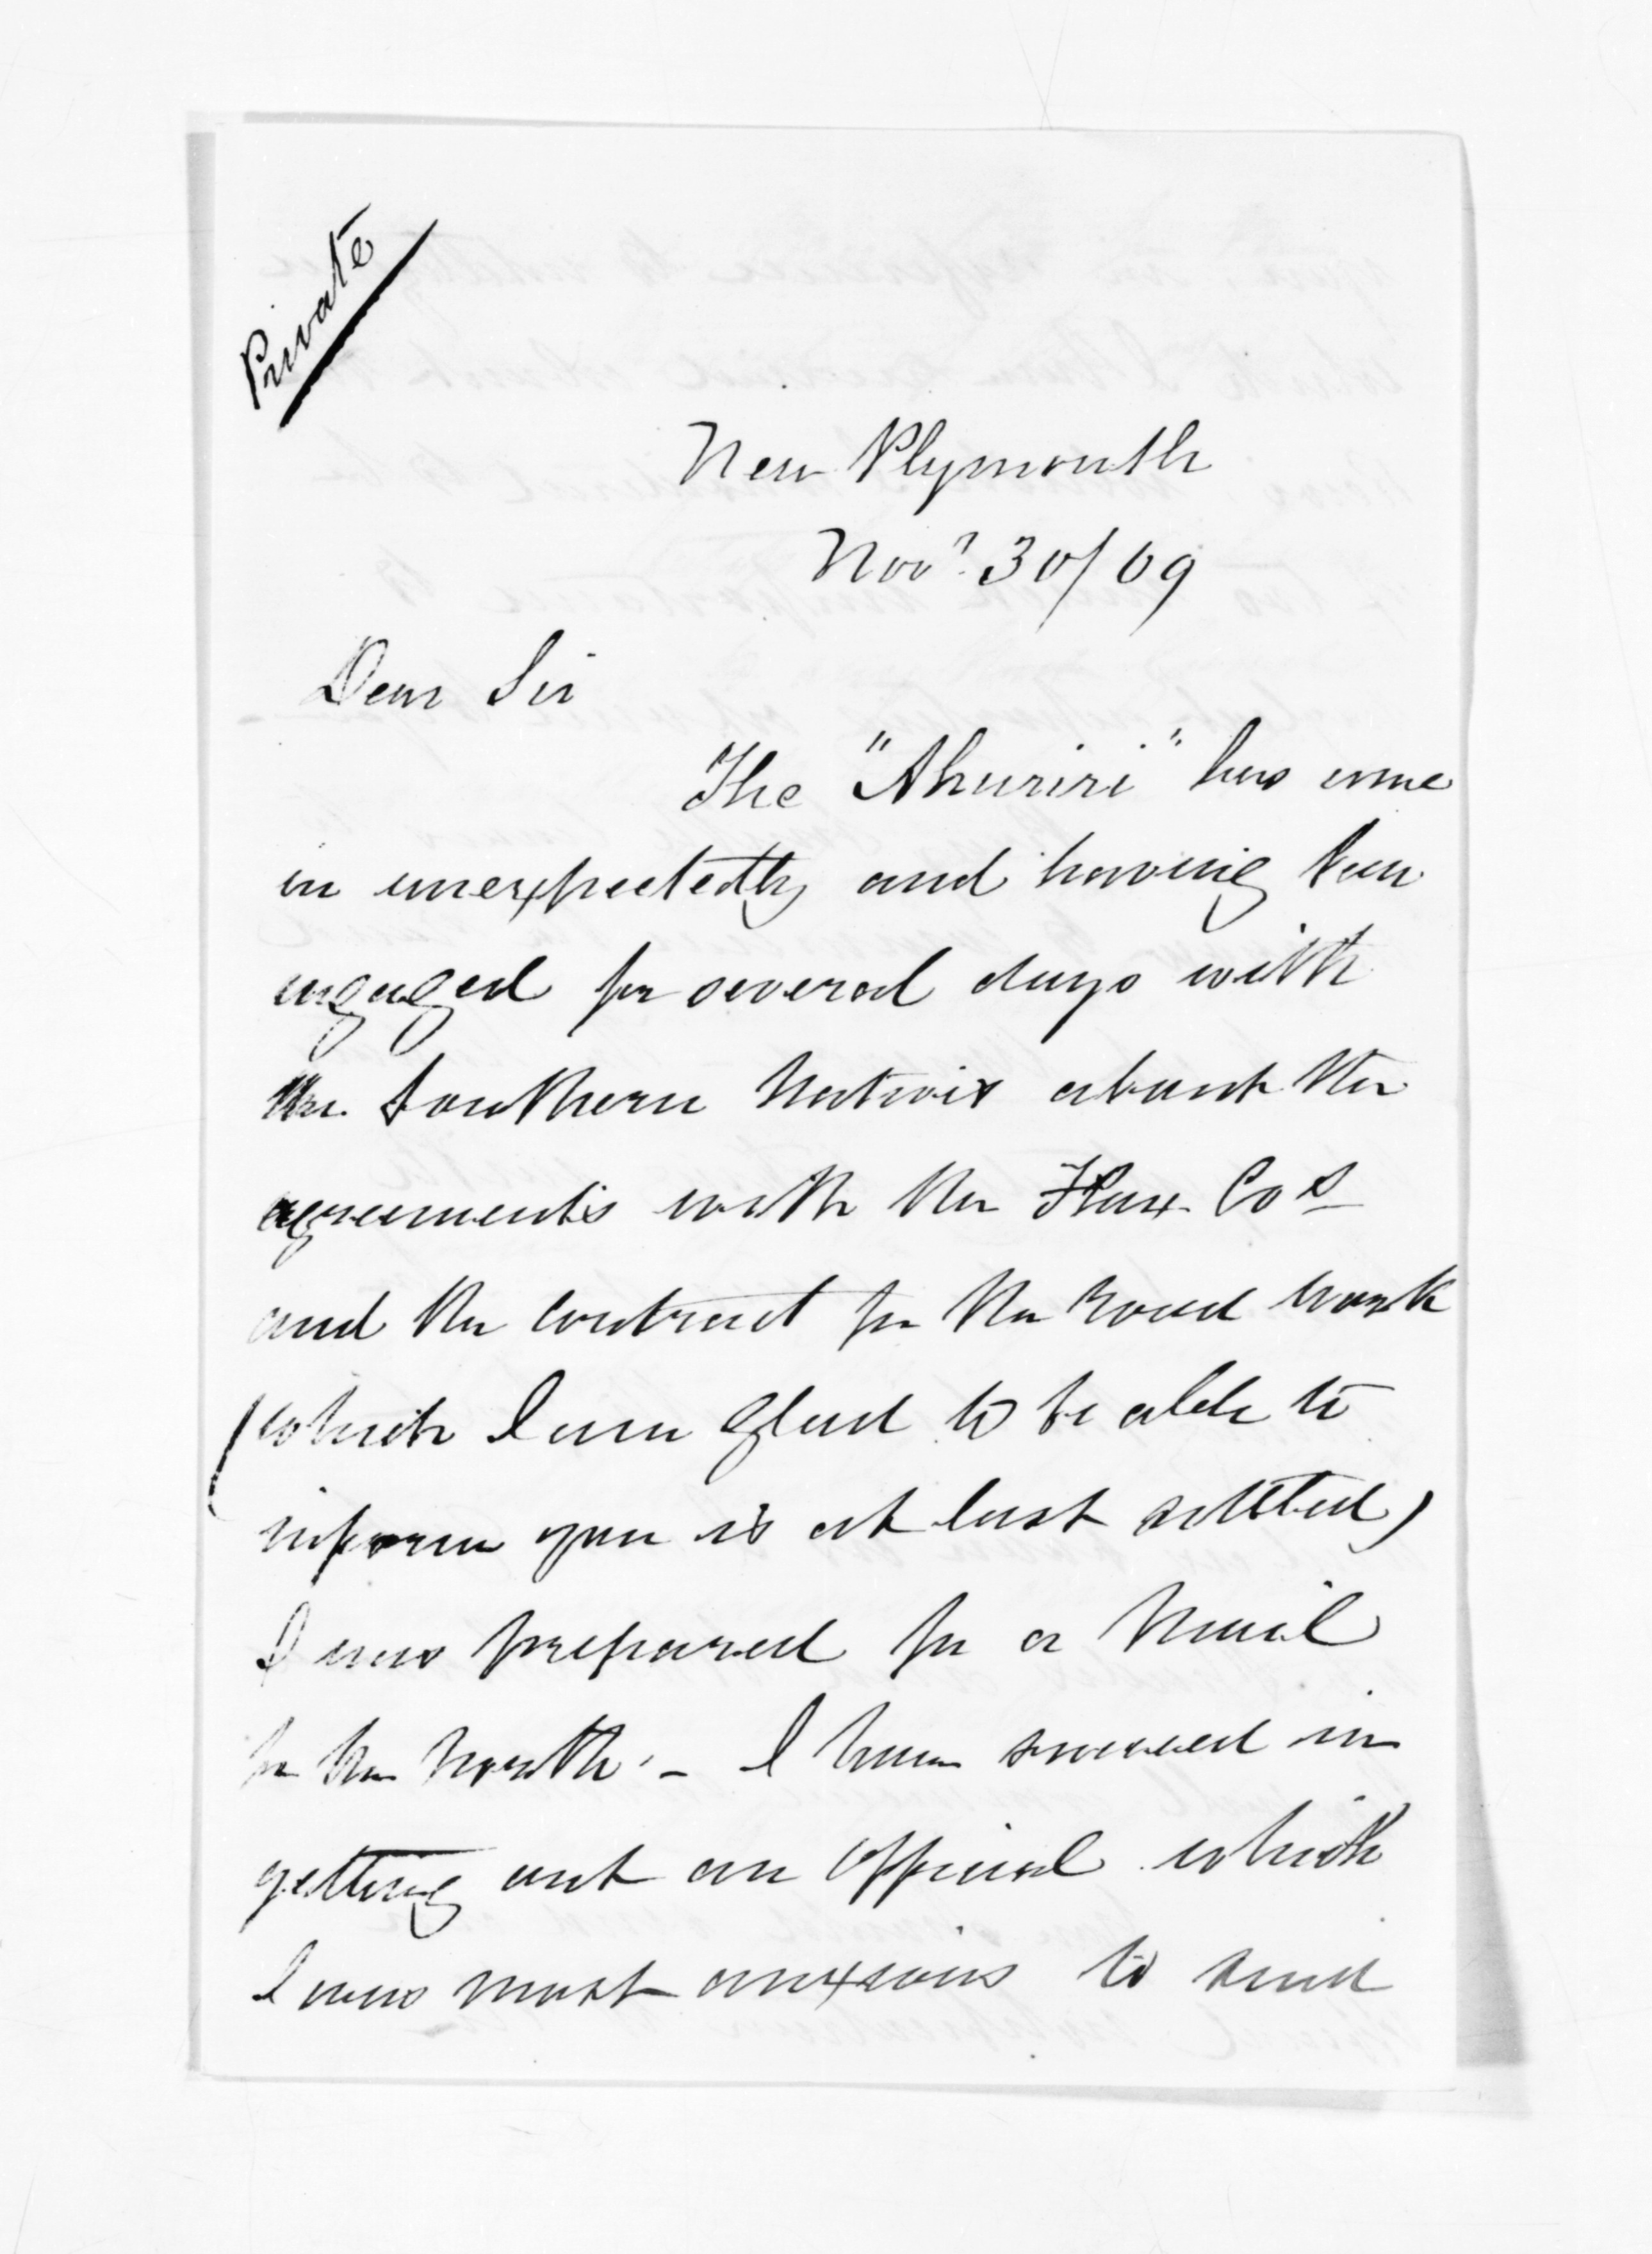 Private
New Plymouth
Novr 30/69
Dear Sir
The "Ahuriri" has come
in unexpectedly and having been
engaged for several days with
the Southern Natives about the
agreements with the Flax Cos
and the contract for the road work
(which I am glad to be able to
inform you is at last settled)
I was prepared for a Mail
for the North. - I have succeed in
getting out an Official which
I was most anxious to send